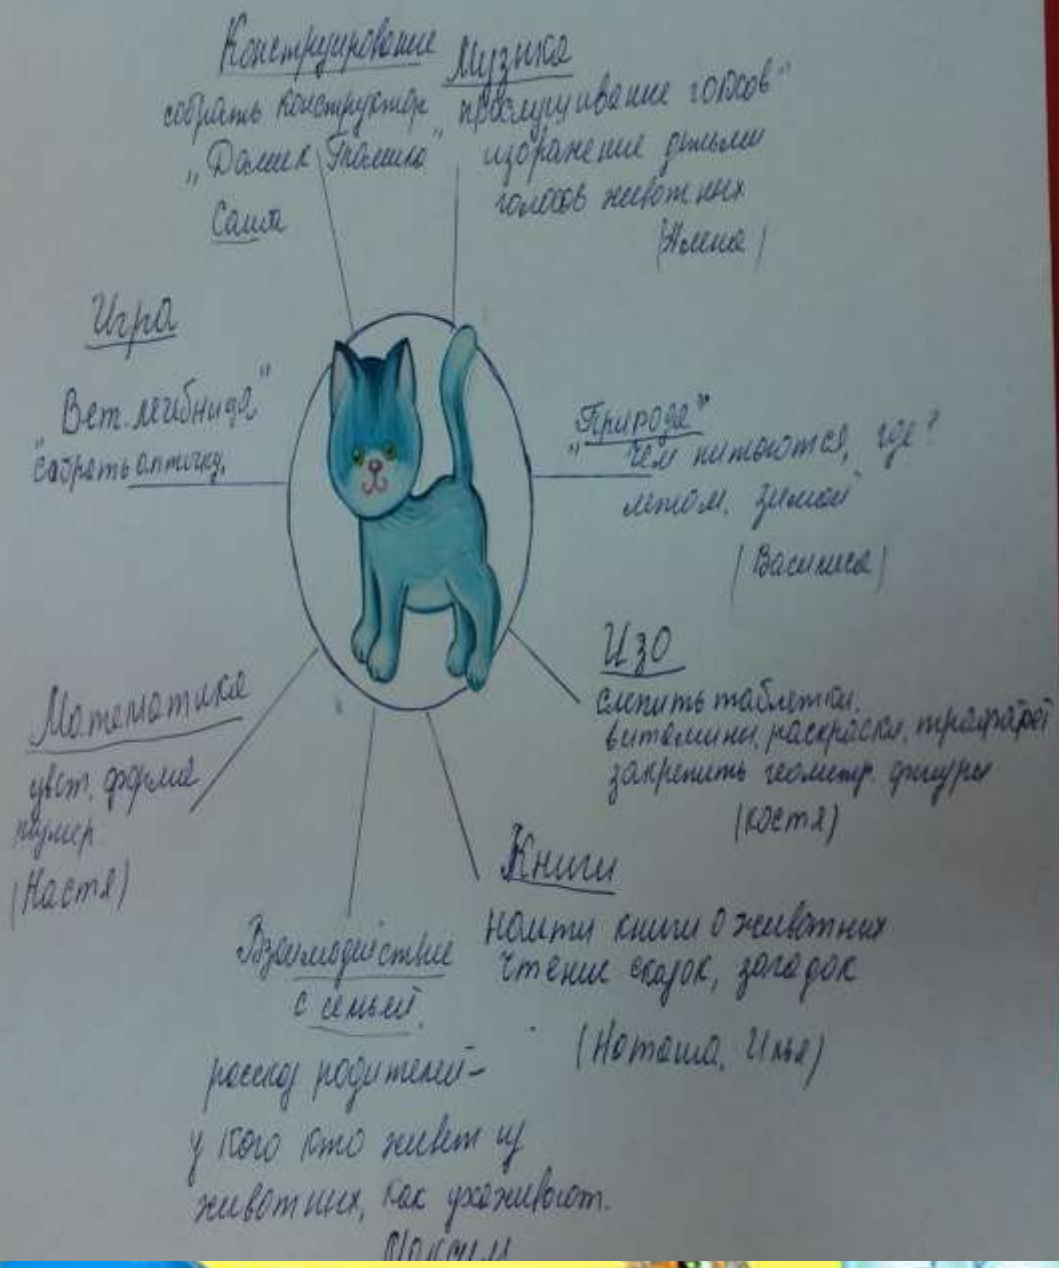 Конструирование
собрать конструктор
„Домик
Саша
Музыка
прослушивание голосов"
изображение детьми
голосов животных
(Алена)
Игра
„Вет. лечебница"
собрать аптечку.
„Природа"
Чем питаются, где?
летом, зимой
(Василиса)
Изо
слепить таблетки,
витамины, раскраски, трафарет
закрепить геометр. фигуры
(Костя)
Математика
цвет, форма
(Настя)
Книги
найти книги о животных
чтение сказок, загадок
(Наташа, Илья)
Взаимодействие
с семьей.
рассказ родителей-
у кого кто живет из
животных, как ухаживают.
Максим